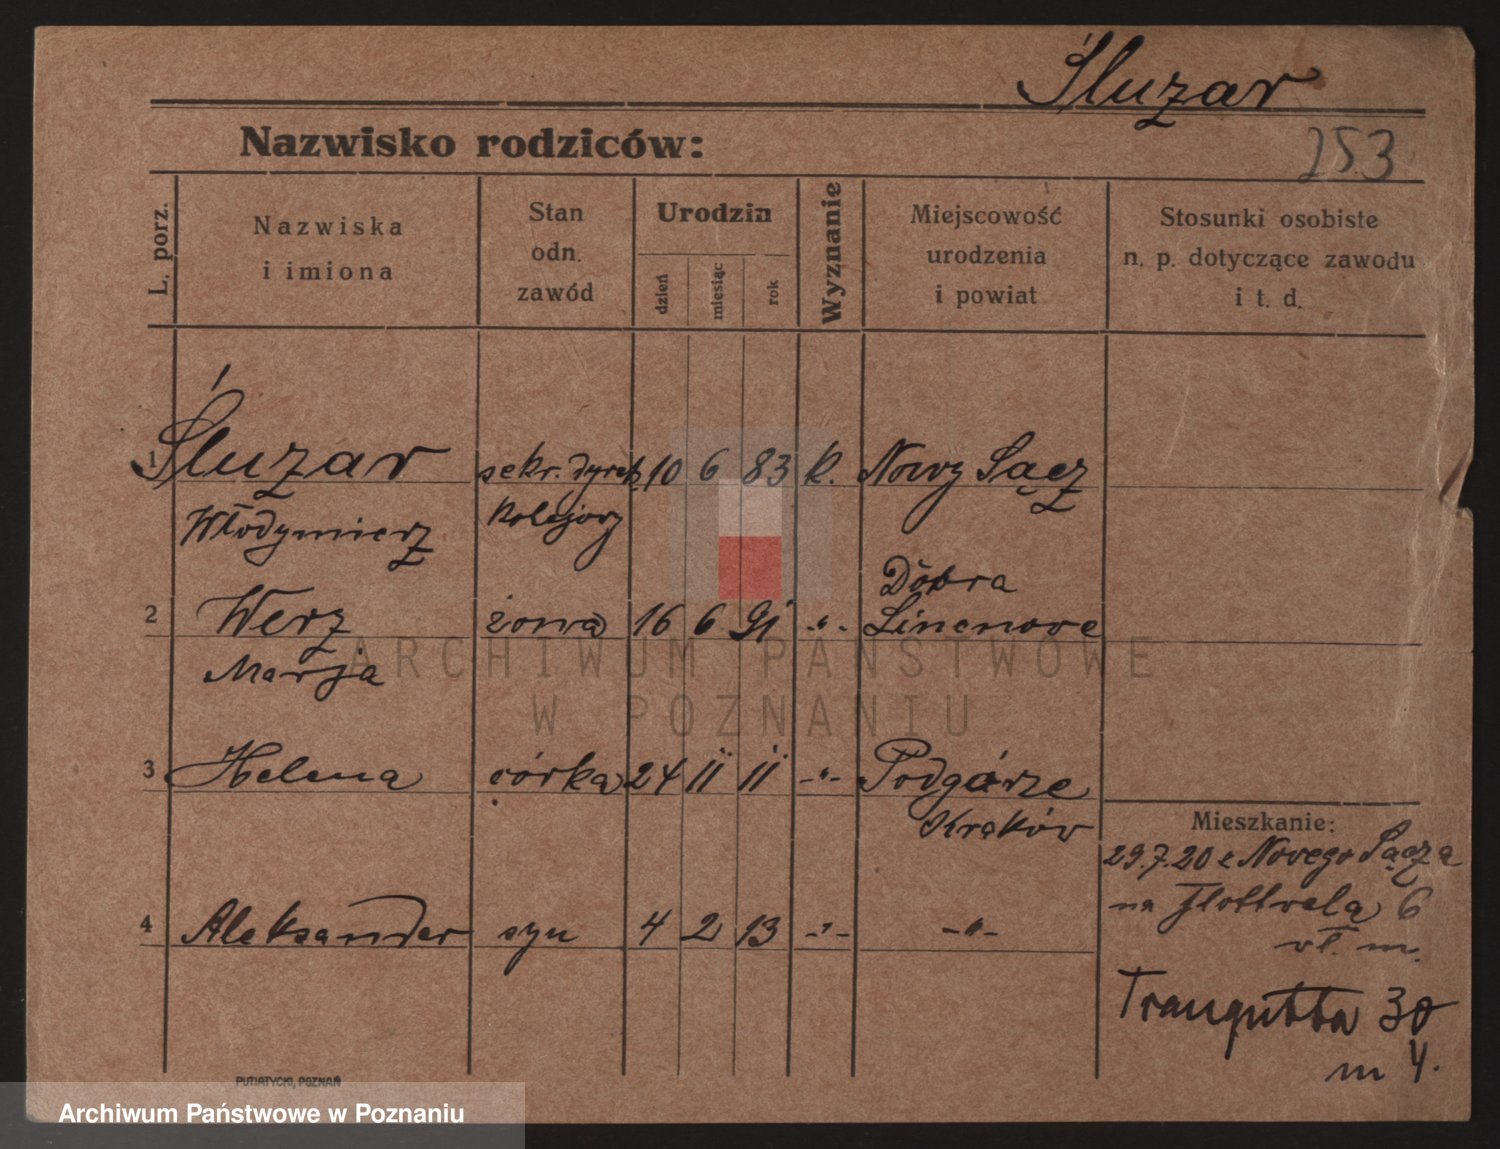 Śluzar
253
Nazwisko rodziców:
L. porz.
Nazwiska
i imiona
Stan
odn.
zawód
Urodzin
dzień
miesiąc
rok
Wyznanie
Miejscowość
urodzenia
i powiat
Stosunki osobiste
n. p. dotyczące zawodu
i t. d.
1 Śluzar sekr. dyrek 10 6 83 k. Nowy Sącz
Włodymierz kolejowy
Dobra
2 Werz żona 16 6 91 -"- Linenowe
Marja
3 Helena córka 24 11 11 -"- Podgórze
Kraków
4 Aleksander syn 4 2 13 -"- -"-
Mieszkanie:
29.7.20 z Nowego Sącza
na Flottwela 6
wł. m.
Traugutta 30
m 4.
ARCHIWUM PAŃSTWOWE
W POZNANIU
PUTIATYCKI, POZNAŃ
Archiwum Państwowe w Poznaniu